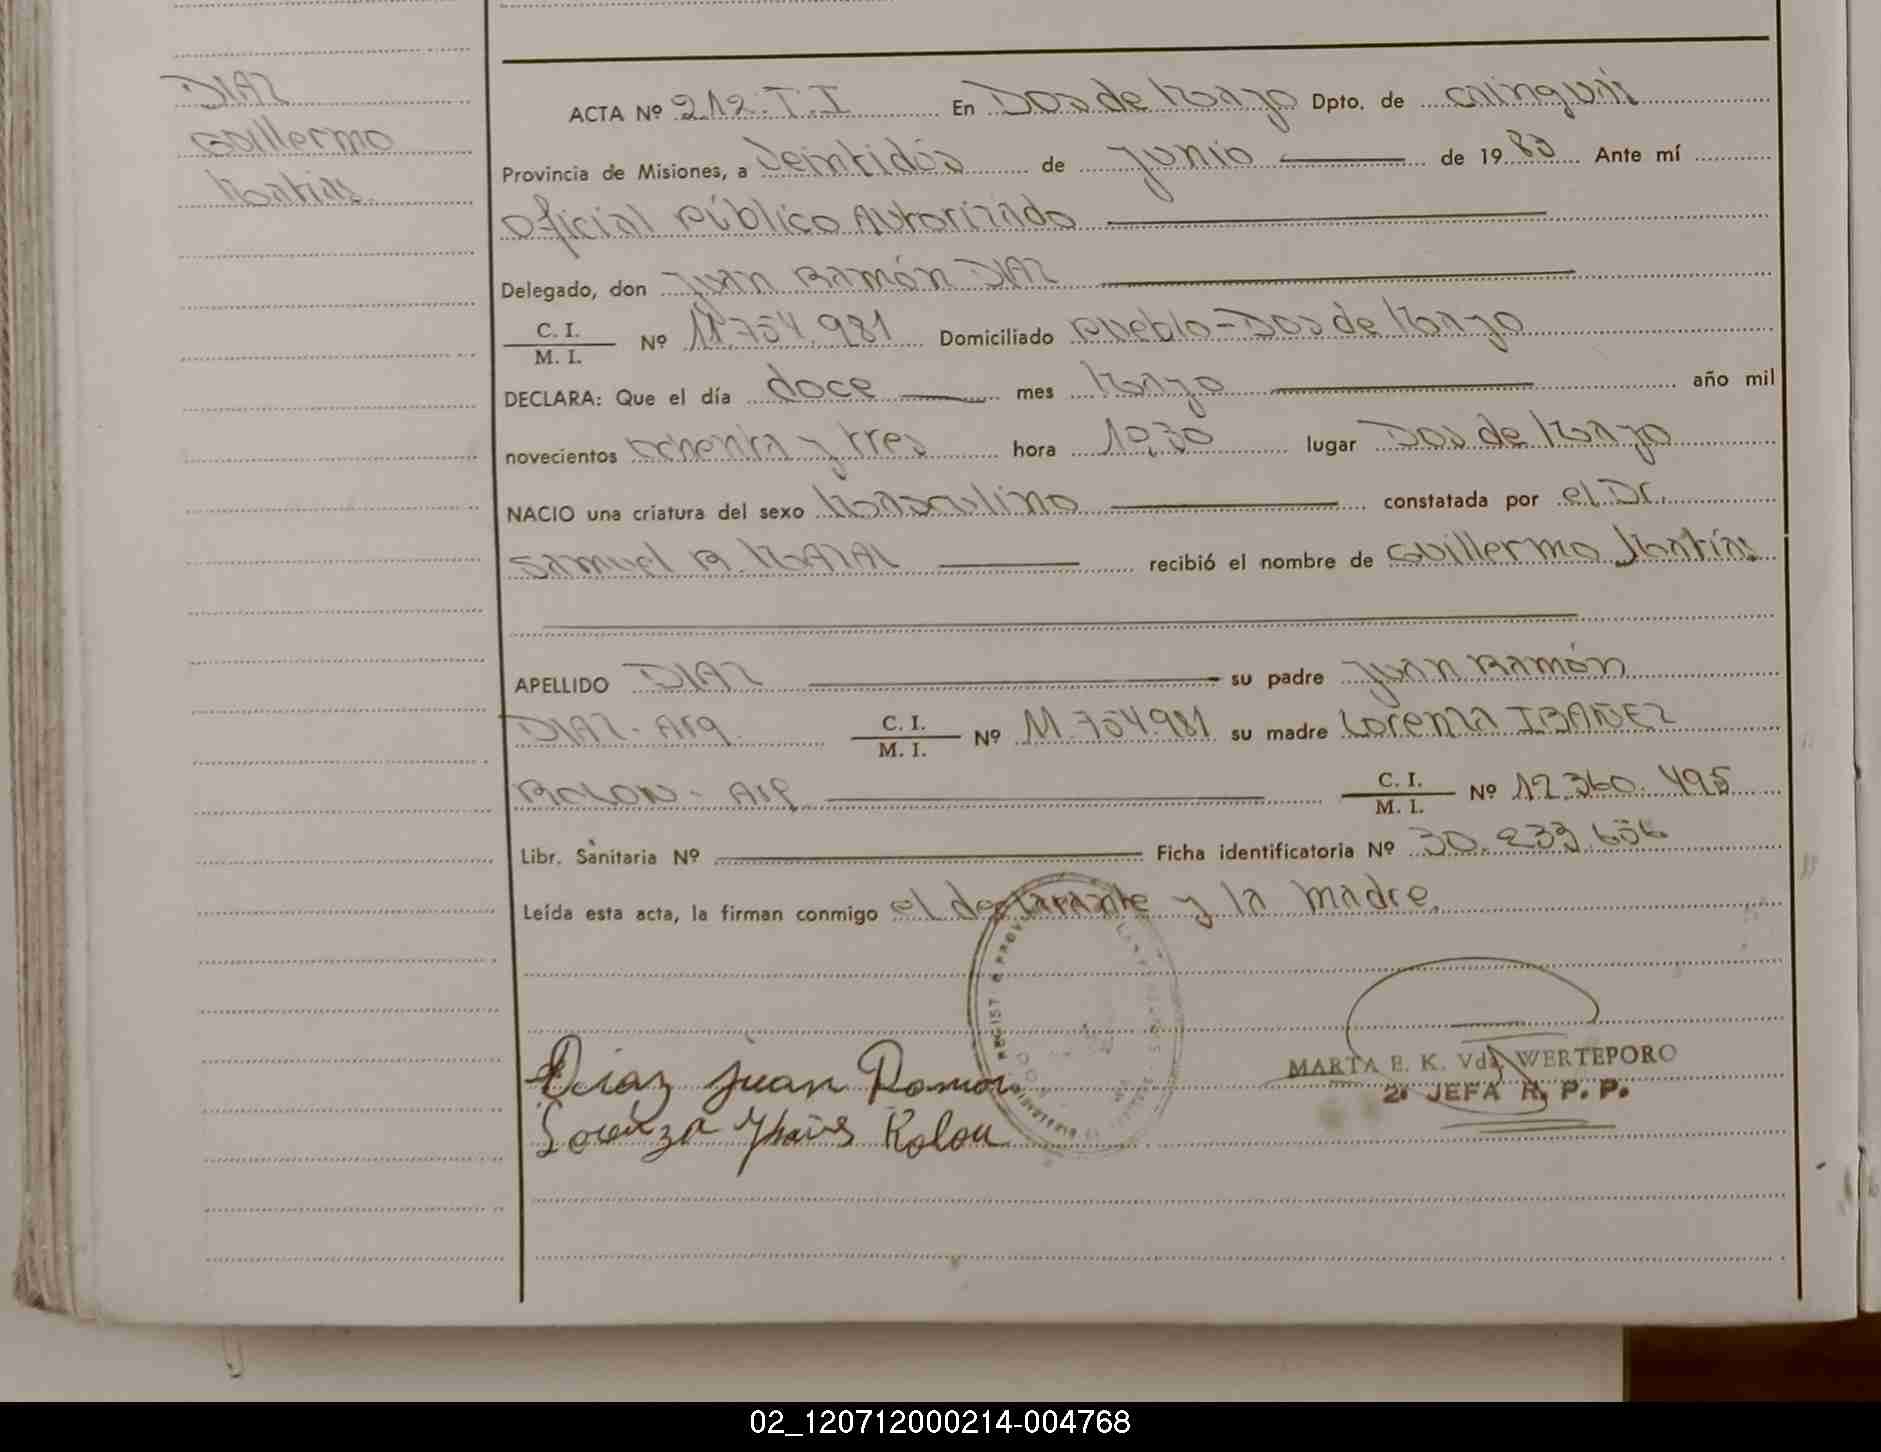 DIAZ
Guillermo
Matias.
ACTA Nº 212.T.I En Dos de Mayo Dpto. de Cainguás
Provincia de Misiones, a Veintidós de Junio de 1983 Ante mí
Oficial Público Autorizado
Delegado, don Juan Ramón DIAZ
C. I.
M. I. Nº 11.754.981 Domiciliado Pueblo-Dos de Mayo
DECLARA: Que el día doce mes Mayo año mil
novecientos ochenta y tres hora 10,30 lugar Dos de Mayo
NACIO una criatura del sexo Masculino constatada por el Dr.
Samuel R. MAZAL recibió el nombre de Guillermo Matías
APELLIDO DIAZ su padre Juan Ramón
DIAZ- Arg. C. I. M. I. Nº 11.754.981 su madre Lorenza IBAÑEZ
ROLON- Arg. C. I. M. I. Nº 12.360.495
Libr. Sanitaria Nº Ficha identificatoria Nº 30.233.656
Leída esta acta, la firman conmigo el declarante y la madre.
Diaz Juan Ramon
Lorenza Rolon
MARTA E. K. Vda. WERTEPORO
2ª JEFA R. P. P.
02_120712000214-004768